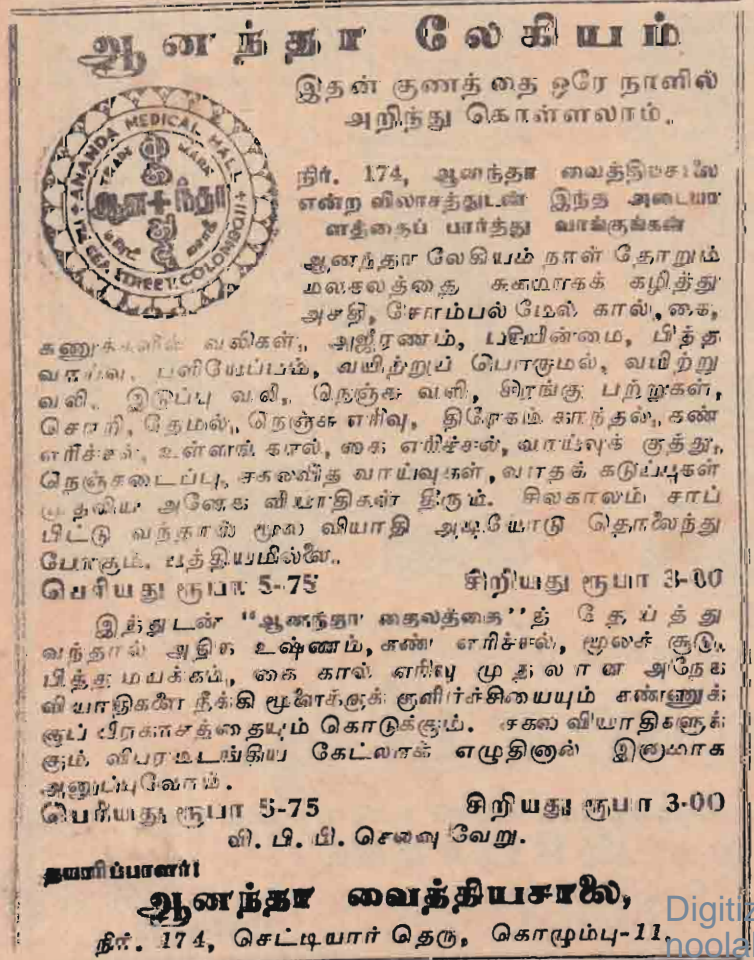 ஆனந்தா லேகியம்
இதன் குணத்தை ஒரே நாளில்
அறிந்து கொள்ளலாம்.
ANANDA MEDICAL HALL
TRADE MARK
ஆன+ந்தா
STREET. COLOMBO 11
நிர். 174, ஆனந்தா வைத்தியசாலை
என்ற விலாசத்துடன் இந்த அடையா
ளத்தைப் பார்த்து வாங்குங்கள்
ஆனந்தா லேகியம் நாள் தோறும்
மலசலத்தை சுகமாகக் கழித்து
அசதி, சோம்பல் மேல் கால், கை,
கணுக்களில் வலிகள், அஜீரணம், பசியின்மை, பித்த
வாய்வு, புளியேப்பம், வயிற்றுப் பொருமல், வயிற்று
வலி, இடுப்பு வலி, நெஞ்சு வலி, சிரங்கு பற்றுகள்,
சொறி, தேமல், நெஞ்சு எரிவு, திரேகம் காந்தல், கண்
எரிச்சல், உள்ளங் கால், கை எரிச்சல், வாய்வுக் குத்து,
நெஞ்சடைப்பு, சகலவித வாய்வுகள், வாதக் கடுப்புகள்
முதலிய அனேக வியாதிகள் தீரும். சிலகாலம் சாப்
பிட்டு வந்தால் மூல வியாதி அடியோடு தொலைந்து
போகும். பத்தியமில்லை.
பெரியது ரூபா 5-75 சிறியது ரூபா 3-00
இத்துடன் "ஆனந்தா தைலத்தை"த் தேய்த்து
வந்தால் அதிக உஷ்ணம், கண் எரிச்சல், மூலச் சூடு,
பித்த மயக்கம், கை கால் எரிவு முதலான அநேக
வியாதிகளை நீக்கி மூளைக்குக் குளிர்ச்சியையும் கண்ணுக்
குப் பிரகாசத்தையும் கொடுக்கும். சகல வியாதிகளுக்
கும் விபரமடங்கிய கேட்லாக் எழுதினால் இனாமாக
அனுப்புவோம்.
பெரியது ரூபா 5-75 சிறியது ரூபா 3-00
வி. பி. பி. செலவு வேறு.
தயாரிப்பாளர்:
ஆனந்தா வைத்தியசாலை,
நிர். 174, செட்டியார் தெரு, கொழும்பு-11.